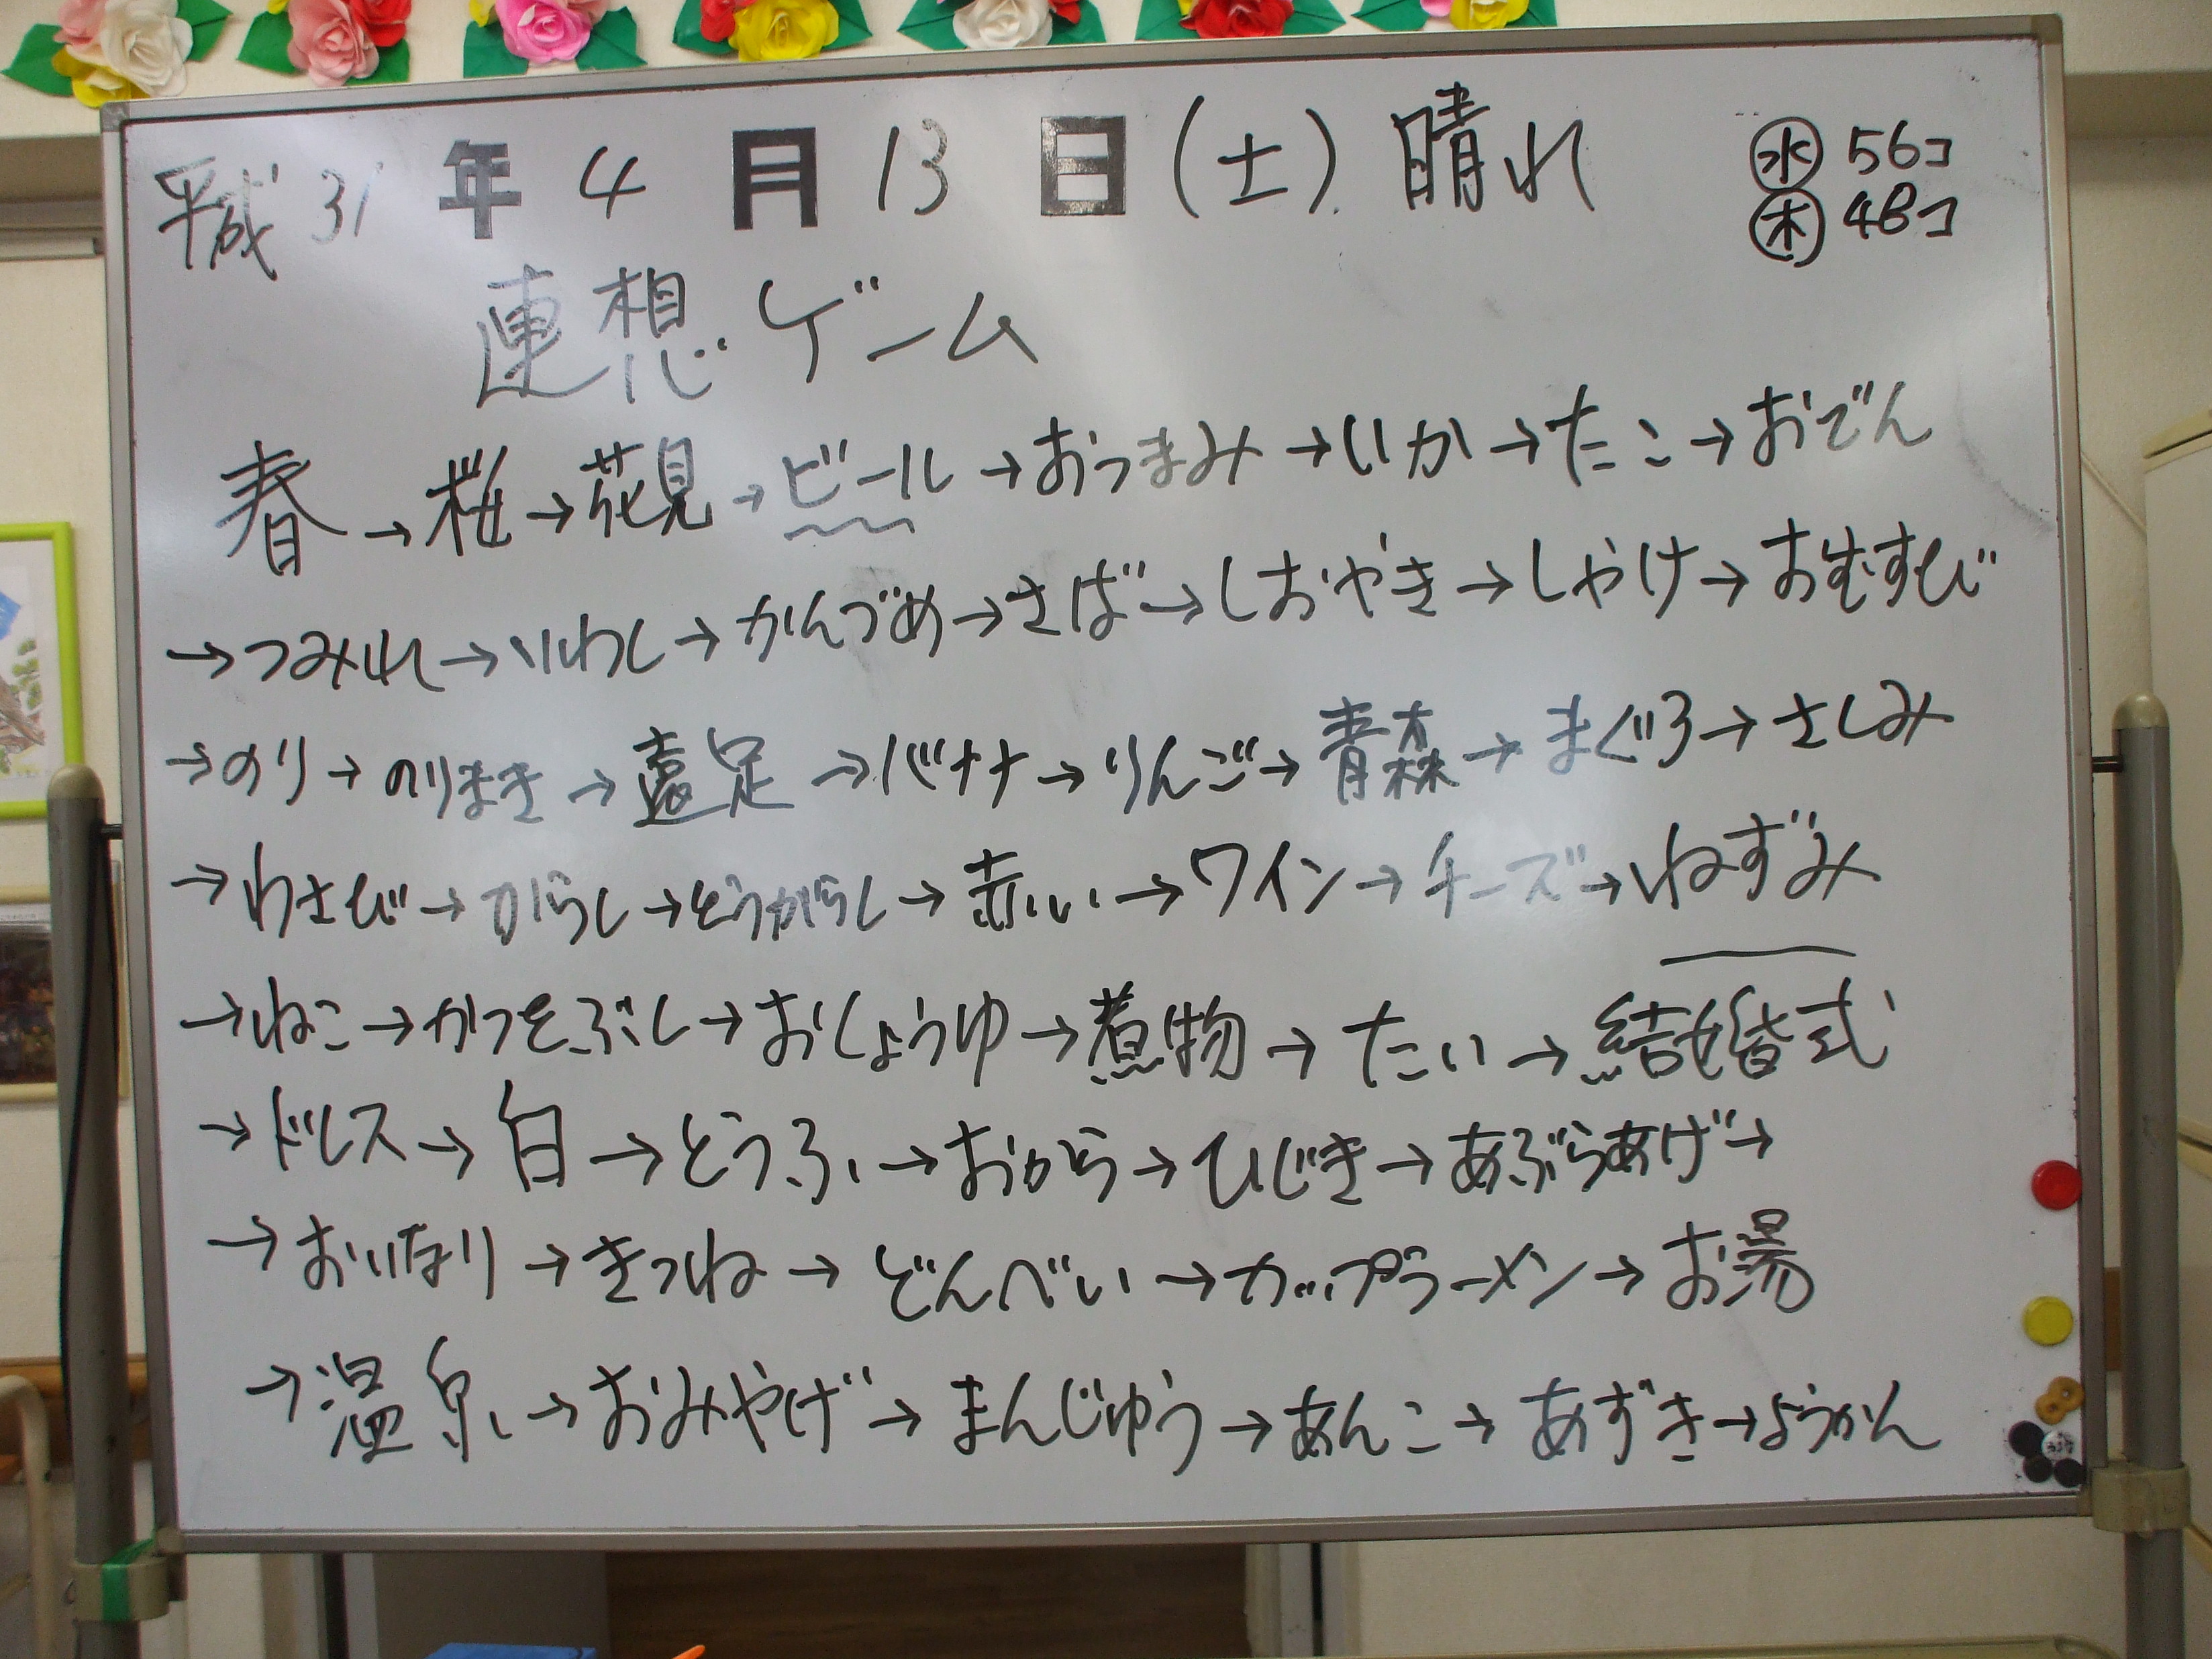 平成31年4月13日(土).晴れ
㊌56コ
㊍48コ
連想ゲーム
春→桜→花見→ビール→おつまみ→いか→たこ→おでん
→つみれ→いわし→かんづめ→さば→しおやき→しゃけ→おむすび
→のり→のりまき→遠足→バナナ→りんご→青森→まぐろ→さしみ
→わさび→からし→とうがらし→赤い→ワイン→チーズ→ねずみ
→ねこ→かつをぶし→おしょうゆ→煮物→たい→結婚式
→ドレス→白→とうふ→おから→ひじき→あぶらあげ→
→おいなり→きつね→どんべい→カップラーメン→お湯
→温泉→おみやげ→まんじゅう→あんこ→あずき→ようかん